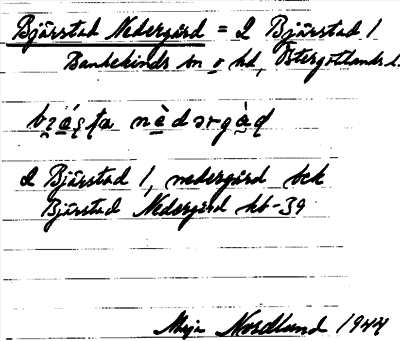 Bjärstad Nedergård = 2 Bjärstad 1
Bankekinds sn o hd, Östergötlands l.
2 Bjärstad 1, nedergård bek
Bjärstad Nedergård kb-39
Maja Nordlund 1944